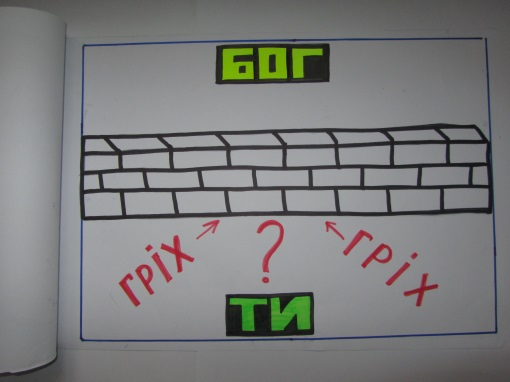 БОГ
ГРІХ
?
ГРІХ
ТИ